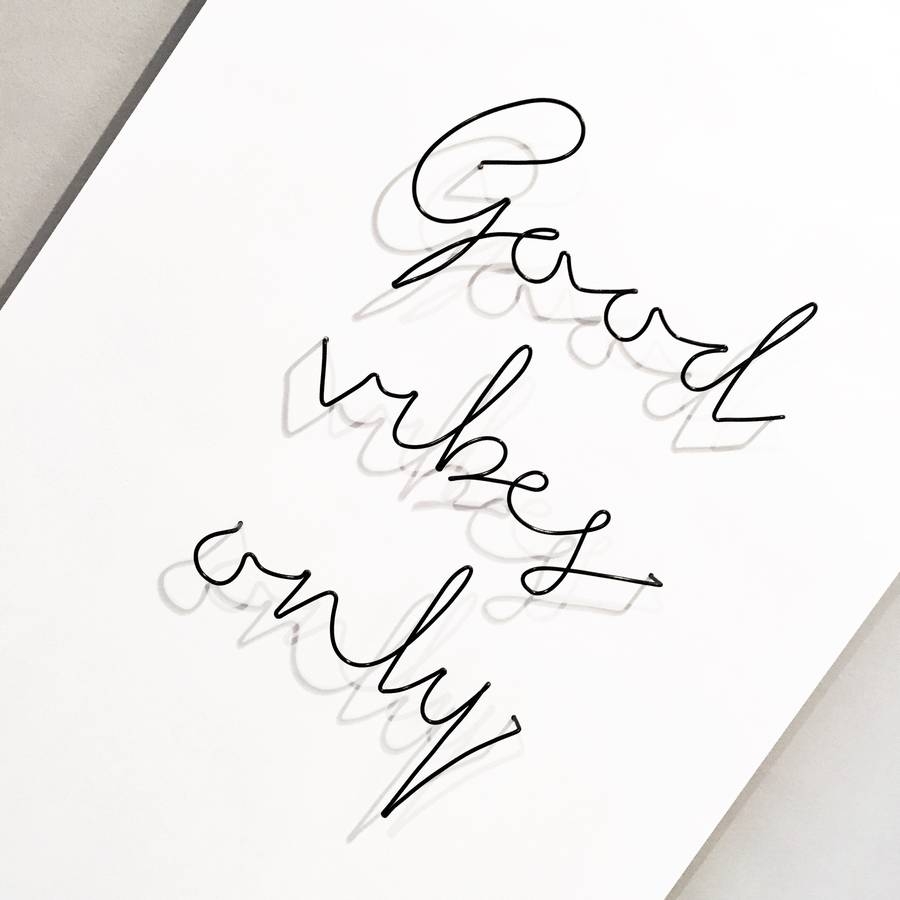 Good
vibes
only